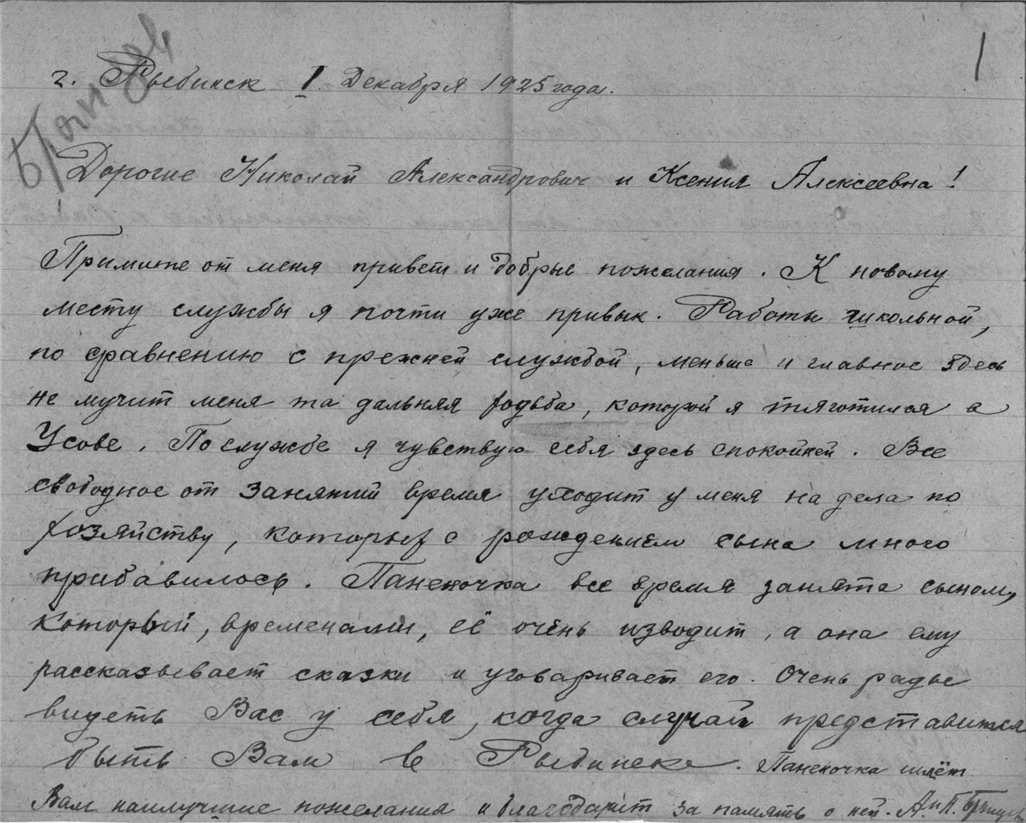 1
г. Рыбинск 1 Декабря 1925 года.
Дорогие Николай Александрович и Ксения Алексеевна!
Примите от меня привет и добрые пожелания. К новому
месту службы я почти уже привык. Работы школьной,
по сравнению с прежней службой, меньше и главное здесь
не мучит меня та дальняя ходьба, которой я тяготился в
Усове. По службе я чувствую себя здесь спокойней. Все
свободное от занятий время уходит у меня на дела по
хозяйству, которых с рождением сына много
прибавилось. Паненочка все время занята сыном,
который, временами, её очень изводит, а она ему
рассказывает сказки и уговаривает его. Очень рады
видеть Вас у себя, когда случай представится
быть Вам в Рыбинске. Паненочка шлёт
Вам наилучшие пожелания и благодарит за память о ней. А. и П.